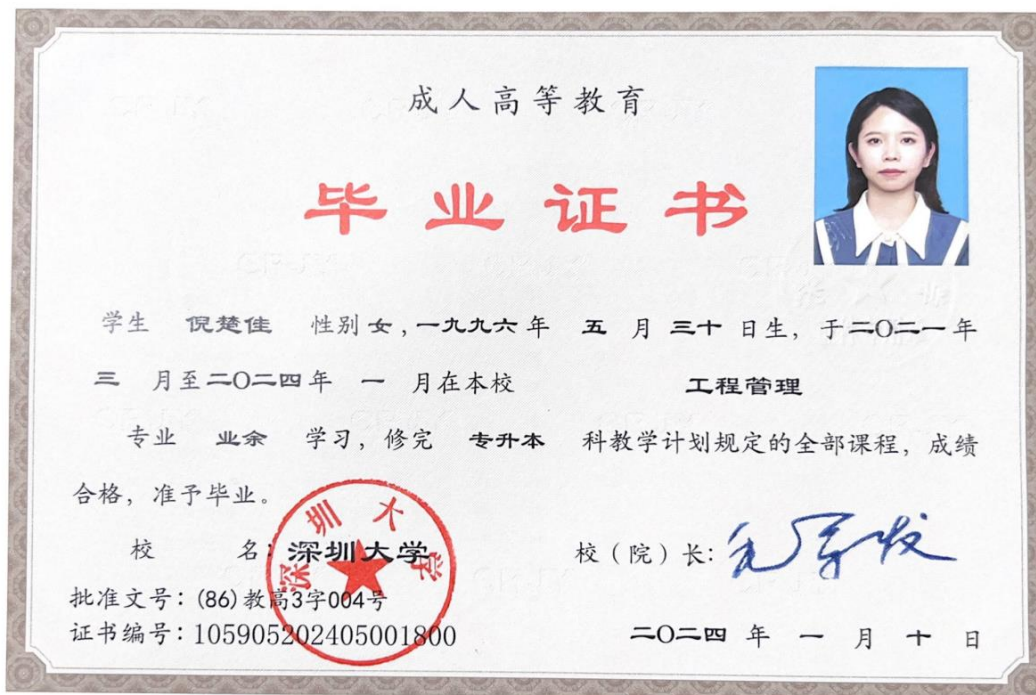 成人高等教育
毕业证书
学生 倪楚佳 性别 女，一九九六年 五 月 三十 日生，于二〇二一年
三 月至二〇二四年 一 月在本校 工程管理
专业 业余 学习，修完 专升本 科教学计划规定的全部课程，成绩
合格，准予毕业。
校 名：深圳大学
深圳大学
校（院）长：
批准文号：(86)教高3字004号
证书编号：105905202405001800
二〇二四 年 一 月 十 日